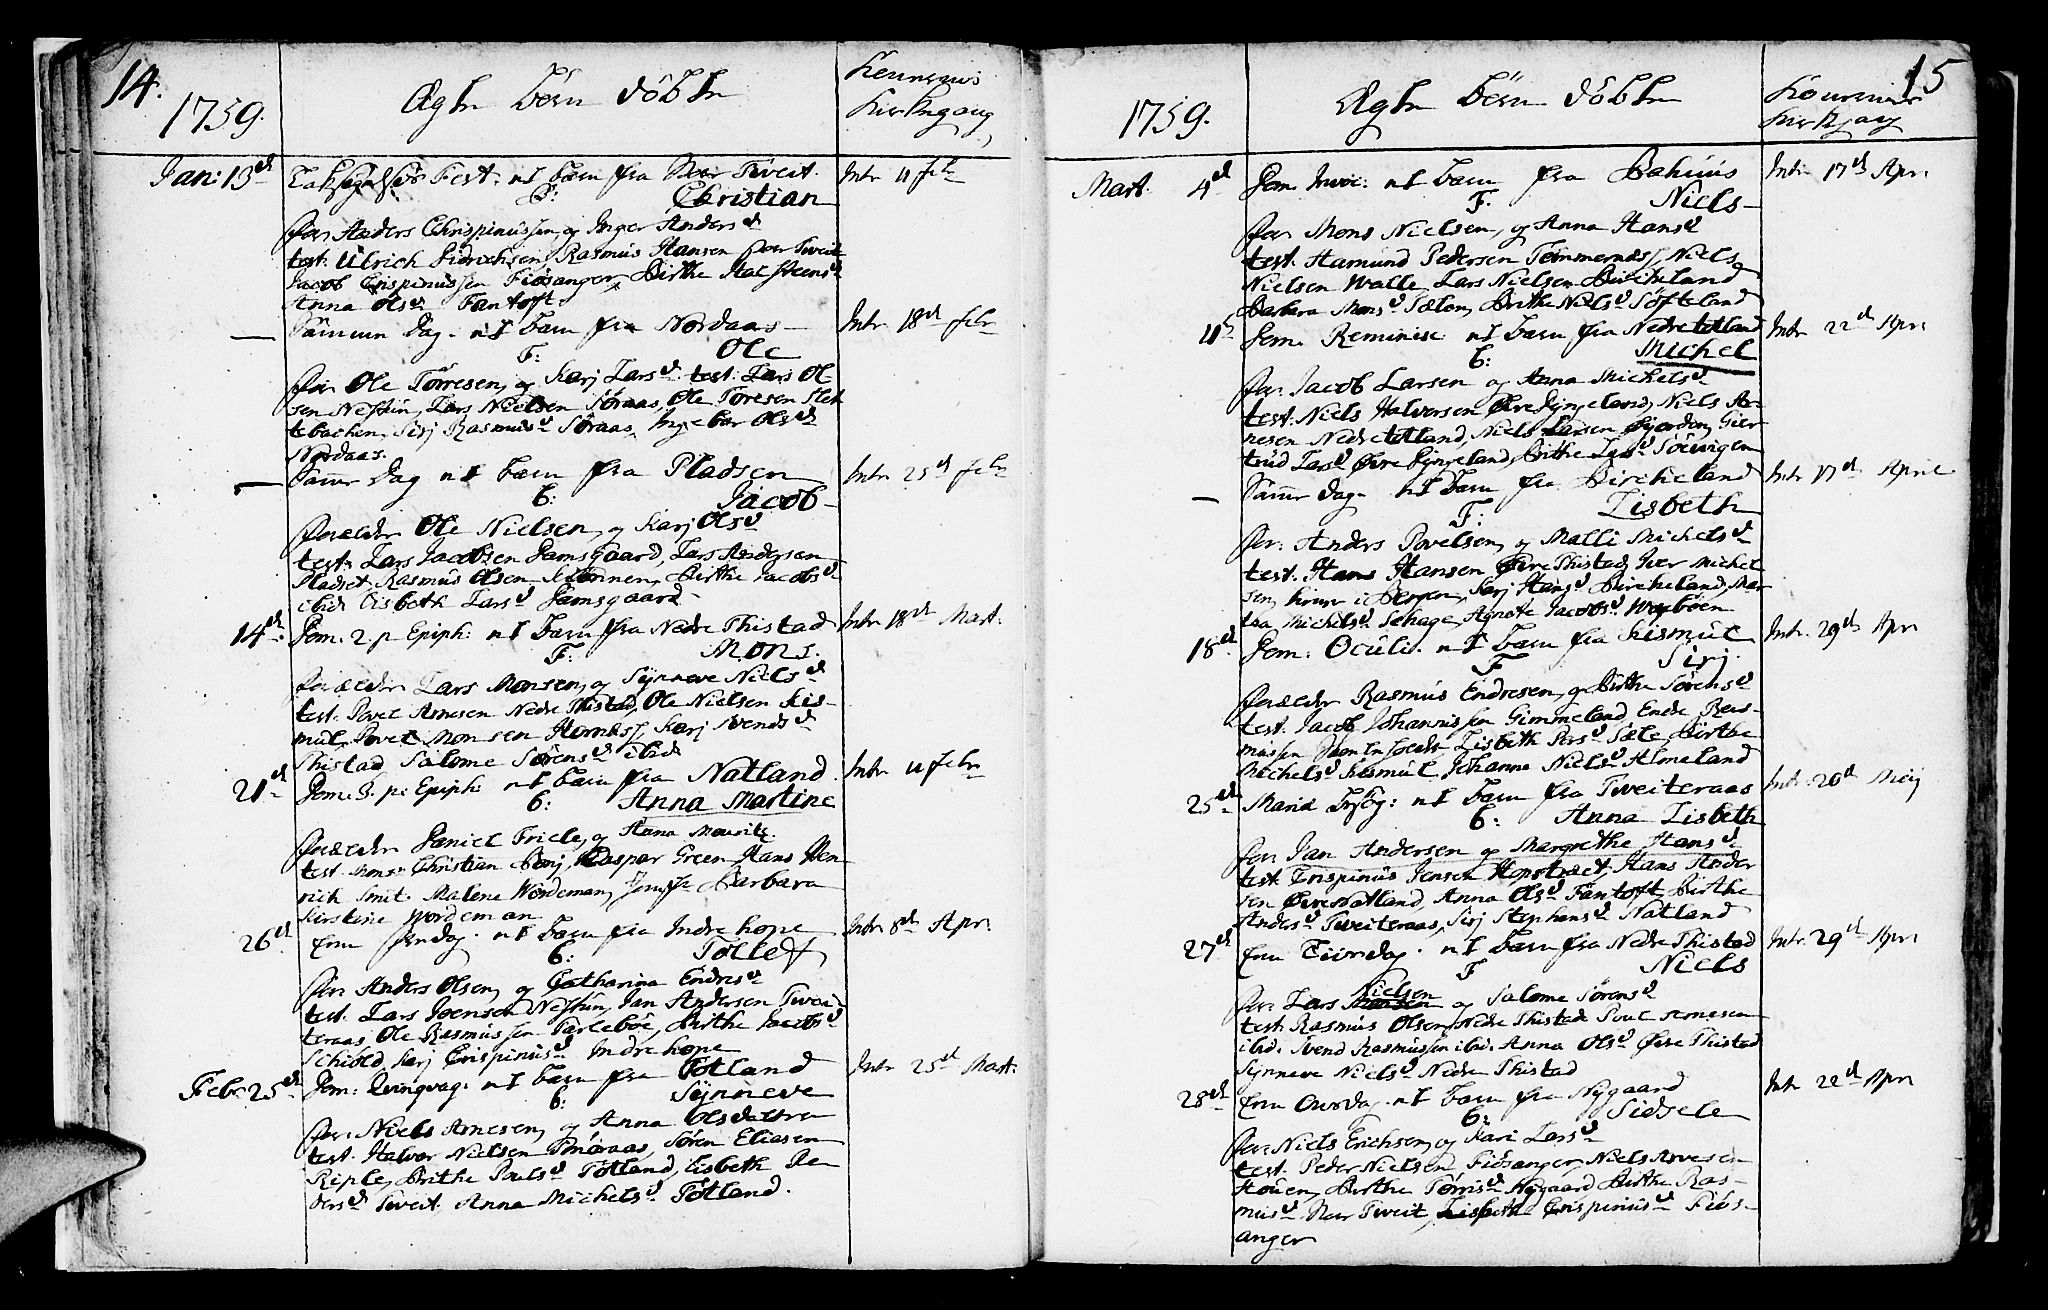 14.
1759.
Ægte Børn døbte
Konernis
Kirkegang
Jan: 13d
Taksigelses Fest. nI barn fra Nær Tveit.
C: Christian
For Anders Chrispinussen, og Inger Andersd
test. Ulrich Didrichsen, Rasmus Hansen Nær Tveit
Jacob Crispinussen Fiøsanger, Birthe
Anna Olsd Fantoft
Intr 11 febr
Samme Dag. nI barn fra Nordaas
F: Ole
For Ole Torresen, og Karj Larsd. test. Lars Ol-
sen Nesttun, Lars Nielsen Søraas, Ole Toresen Slet
tebachen, Sirj Rasmusd Søraas, Ingebor Olsd
Nordaas.
Intr 18d febr
Samme Dag nI barn fra Pladsen
C: Jacob
Forælder Ole Nielsen, og Karj Olsd
test. Lars Jacobsen Damsgaard, Lars Andersen
Pladset, Rasmus Olsen, Birthe Jacobsd
ibid Lisbeth Larsd Damsgaard
Intr 25d febr
14d
Dom. 2 p. Epiph: nI barn fra Nedre Thistad
F: Mons.
Forælder Lars Monsen, og Synneve Nielsd
test. Povel Arnesen Nedre Thistad, Ole Nielsen Kis-
mul, Povel Monsen Hornæss, Karj Svendsd
Thistad Salome Sørensd ibid
Intr 18d Mart.
21d
Dom. 3. p. Epiph: nI barn fra Natland.
C: Anna Martine
Forælder Daniel Friele, og Anna Mourits.
test. Monsr Christian Berj, Caspar Green, Hans Hen
rich Smit. Malene Wordeman, Jomfr Barbara
Kirstine Wordeman
Intr 11 febr
26d
fem Søndag. nI barn fra Indre hope
C: Tollef
For Anders Olsen, og Catharina Endresd
test. Lars Joensen Nesttun, Jan Andersen Tvei-
teraas, Ole Rasmussen Tarlebøe, Birthe Jacobsd
Schiold, Sarj Crispinusd Indre hope
Intr 8d Apr:
Febr 25d
Dom: Qvinqvag: nI barn fra Totland
C: Synneve
For Niels Arnesen, og Anna Olsdattra
test. Halvor Nielsen Smøraas, Søren Eliesen
Riple, Birthe Poulsd Totland, Lisbeth Pe
dersd Tveit. Anna Michelsd Totland.
Intr 25d Mart.
15
1759.
Ægte Børn døbte
Konernis
Kirkgang
Mart. 4d
Dom. Invoc: nI barn fra Bahuus
F. Niels
For Mons Nielsen, og Anna Hansd
test. Hamund Pedersen Tømmernæss, Niels
Nielsen Walle, Lars Nielsen Bircheland
Barbara Monsd Sælen, Birthe Nielsd Softeland
Intr. 17d Apr.
11d
Dom. Reminisc nI barn fra Nedre totland
C: Michel
For. Jacob Larsen og Anna Michelsd
test. Niels Halvorsen Øvre Dyngeland, Niels Ar-
nesen Nedre totland, Niels Larsen Gierdon, Gier
trud Larsd Øvre Dyngeland, Birthe Larsd Sørvigen
Intr 22d Apri
Samme dag. nI barn fra Bircheland
F: Lisbeth
For: Anders Povelsen, og Malli Michelsd
test. Hans Hansen Øvre Thistad, Iver Michel
sen, i Bergen, Sarj Hansd Bircheland, Mar
tha Michelsd Schage, Agnete Jacobsd
Intr 17d Aprile
18d
Dom: Oculi. nI barn fra Kismul
F Sirj.
Forælder Rasmus Endresen, og Birthe Sørensd
test. Jacob Johannissen Gimmeland, Endre Ras-
mussen Lisbeth Persd Sæle, Birthe
Michelsd Kismul, Johanne Nielsd Almeland
Intr. 29d Apri
25d
Mariæ Besøg: nI barn fra Tveiteraas
C: Anna Lisbeth
For Jan Andersen og Margrethe Hansd
test Crispinus Jensen Hopstræt, Hans Ander
sen Øvre Natland, Anna Olsd Fantoft, Birthe
Andersd Tveiteraas, Sirj Stephensd Natland
Intr. 20d Maij
27d
fem Tiirsdag. nI barn fra Nedre Thistad
F Niels
For: Lars Nielsen og Salome Sørensd
test. Rasmus Olsen Nedre Thistad Poul Arnesen
ibid. Svend Rasmussen ibid. Anna Olsd Øvre Thistad
Synneve Nielsd Nedre Thistad
Intr. 29d Apri
28d
fem Onsdag. nI barn fra Nygaard
C: Sidsele
For. Niels Erichsen, og Kari Larsd
test. Peder Nielsen Fiøsanger, Niels Arvesen
Houen, Birthe Torrisd Nygaard, Birthe Ras-
musd Nær Tveit, Lisbeth Crispinusd Fiøs-
anger
Intr 22d Apri